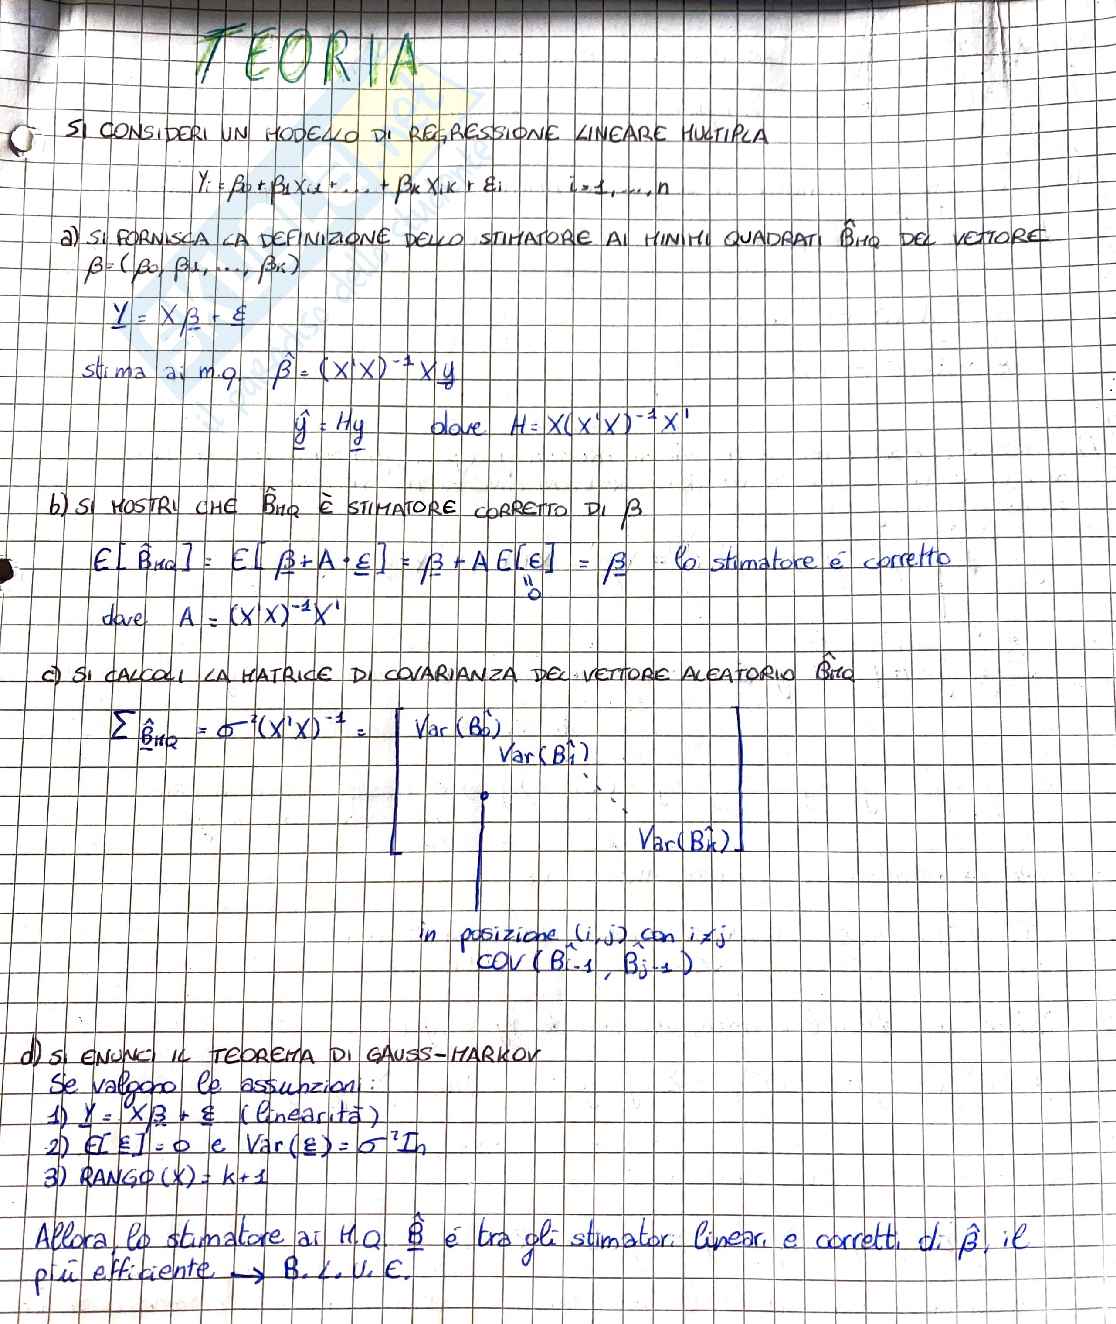 TEORIA
SI CONSIDERI UN MODELLO DI REGRESSIONE LINEARE MULTIPLA
Yi = β0 + β1 Xi1 + ... + βk Xik + εi i=1,...,n
a) SI FORNISCA LA DEFINIZIONE DELLO STIMATORE AI MINIMI QUADRATI B̂MQ DEL VETTORE
β=(β0, β1, ..., βk)
Y = Xβ + ε
stima ai m.q. β̂ = (X'X)⁻¹ X y
ŷ = Hy dove H = X(X'X)⁻¹X'
b) SI MOSTRI CHE B̂MQ È STIMATORE CORRETTO DI β
E[B̂MQ] = E[β + A · ε] = β + A E[ε] = β lo stimatore è corretto
"
0
dove A = (X'X)⁻¹X'
c) SI CALCOLI LA MATRICE DI COVARIANZA DEL VETTORE ALEATORIO B̂MQ
Σ B̂MQ = σ²(X'X)⁻¹ = [ Var(B̂0)
Var(B̂1)
Var(B̂k) ]
in posizione (i,j) con i≠j
COV(B̂i-1, B̂j-1)
d) SI ENUNCI IL TEOREMA DI GAUSS-MARKOV
Se valgono le assunzioni:
1) Y = Xβ + ε (linearità)
2) E[ε] = 0 e Var(ε) = σ²In
3) RANGO(X) = k+1
Allora lo stimatore ai M.Q. B̂ è tra gli stimatori lineari e corretti di β̂, il
più efficiente → B.L.U.E.